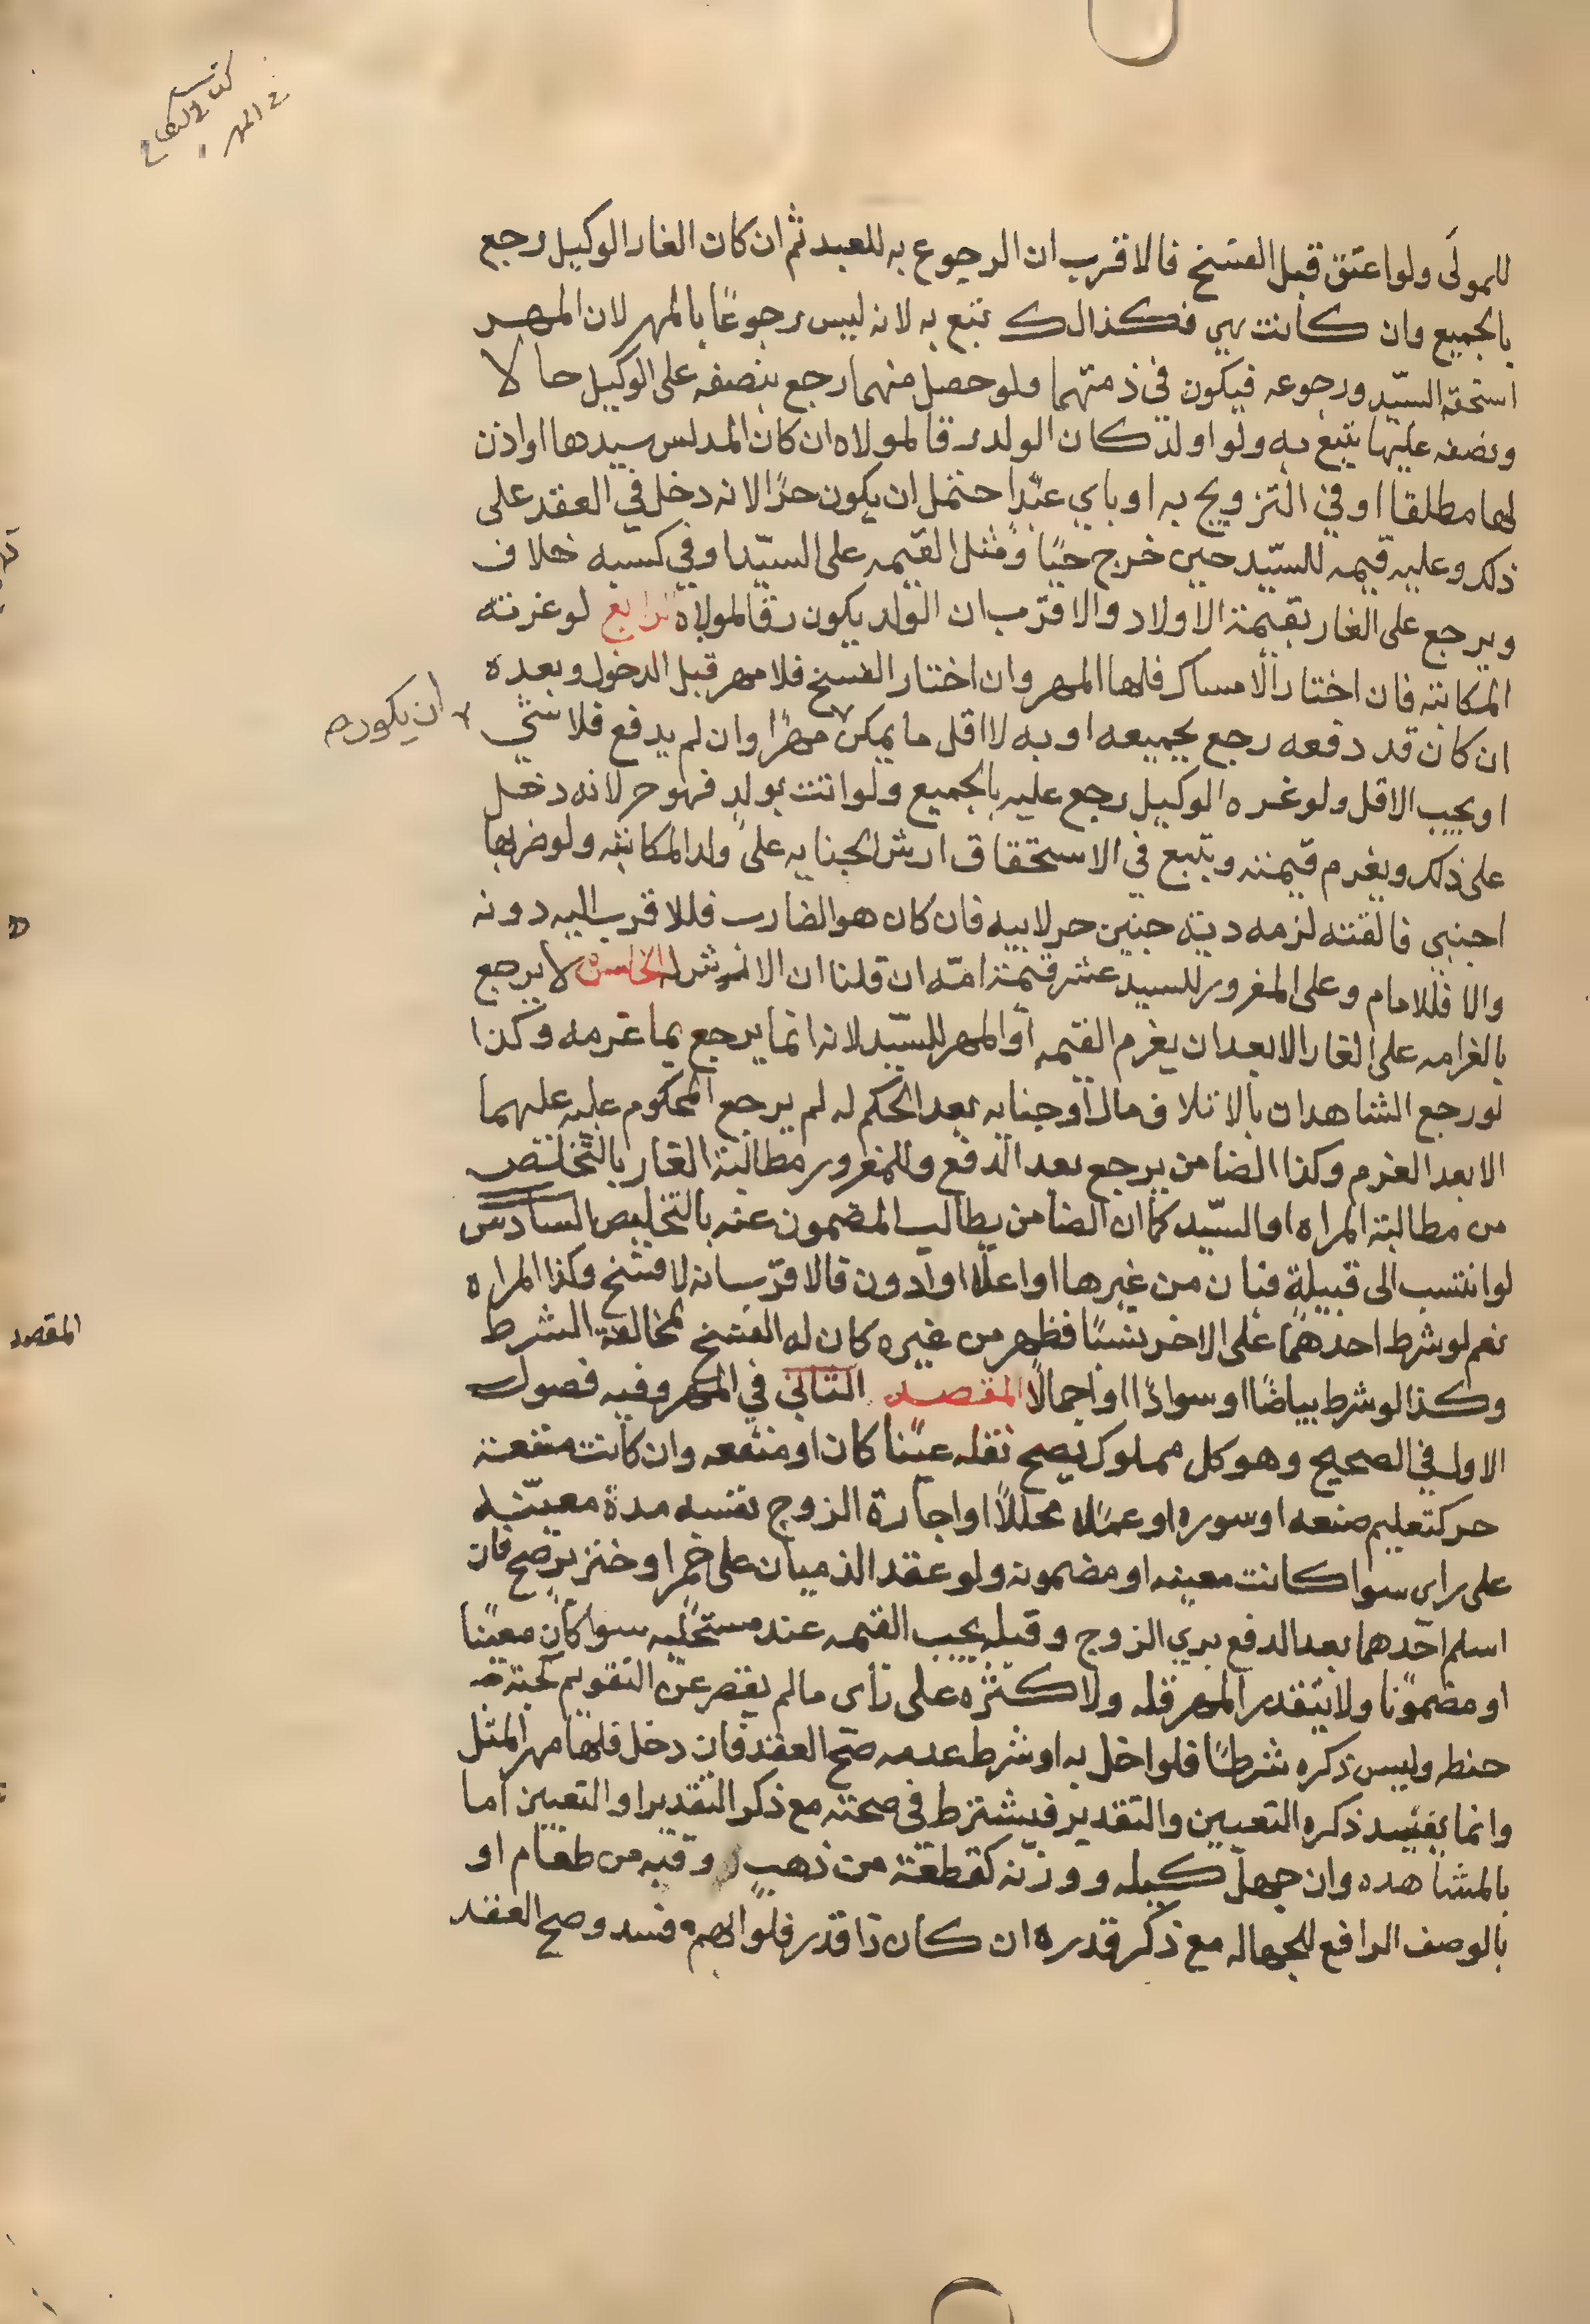 كتاب النكاح
في المهر
للمولى ولو اعتق قبل الفسخ فالاقرب ان الرجوع به للعبد ثم ان كان الغار الوكيل رجع
بالجميع وان كانت هي فكذالك تتبع به لانه ليس رجوعًا بالمهر لان المهر
استحقه السيّد ورجوعه فيكون في ذمتهما ولو حصل منهما رجع بنصفه على الوكيل حالا
ونصفه عليها يتبع به ولو اولد كان الولد رقا لمولاه ان كان المدلس سيدها او اذن
لها مطلقا او في التزويج به او باي عبدٍ احتمل ان يكون حرًا لانه دخل في العقد على
ذلك وعليه قيمه للسيّد حين خرج حيًا ومثل القيمه على السيّد او في كسبه خلاف
ويرجع على الغار بقيمة الاولاد والاقرب ان الولد يكون رقا لمولاه الرابع لو غرته
المكاتبه فان اختار الامساك فلها المهر وان اختار الفسخ فلا مهر قبل الدخول وبعده
ان كان قد دفعه رجع بجميعه او به لا اقل ما يمكن مهرًا وان لم يدفع فلا شي
ان يكون صح
او يجب الاقل ولو غره الوكيل رجع عليه بالجميع ولو اتت بولدٍ فهو حر لانه دخل
على ذلك ويغرم قيمته ويتبع في الاستحقاق ارش الجنايه على ولد المكاتبه ولو ضربها
اجنبي فالقته لزمه دية جنين حر لابيه فان كان هو الضارب فللاقرب اليه دونه
والا فللامام وعلى المغرور للسيد عشر قيمة امّه ان قلنا ان الارش له الخامس لا يرجع
بالغرامه على الغار الا بعد ان يغرم القيمه او المهر للسيّد لانه انما يرجع بما غرمه وكذا
لو رجع الشاهدان بالاتلاف مال او جنايه بعد الحكم له لم يرجع المحكوم عليه عليهما
الا بعد الغرم وكذا الضامن يرجع بعد الدفع وللمغرور مطالبة الغار بالتخلّص
من مطالبة المراه او السيّد كما ان الضامن يطالب المضمون عنه بالتخليص السادس
لو انتسب الى قبيلةٍ فبان من غيرها او اعلا او ادون فالاقرب انه لا فسخ وكذا المراه
نعم لو شرط احدهما على الاخر نسبًا فظهر من غيره كان له الفسخ لمخالفة الشرط
وكذا لو شرط بياضًا او سوادًا او جمالًا المقصد الثاني في المهر وفيه فصول
المقصد
الاول في الصحيح وهو كل مملوك يصح نقله عينًا كان او منفعه وان كانت منفعة
حر كتعليم صنعه او سوره او عملا محللًا او اجارة الزوج نفسه مدة معيّنه
على راى سوا كانت معينه او مضمونه ولو عقد الذميان على خمرٍ او خنزير صح فان
اسلم احدهما بعد الدفع بري الزوج وقبله يجب القيمه عند مستحليه سوا كان معينًا
او مضمونًا ولا يتقدر المهر قله ولا كثره على راى ما لم يقصر عن التقويم كحبة
حنطه وليس ذكره شرطًا فلو اخل به او شرط عدمه صح العقد فان دخل فلها مهر المثل
وانما يفيد ذكره التعيين والتقدير فيشترط في صحته مع ذكر التقدير او التعيين اما
بالمشاهده وان جهل كيله ووزنه كقطعة من ذهبٍ وقبه من طعام او
بالوصف الرافع للجهاله مع ذكر قدره ان كان ذا قدر فلو ابهم فسد وصح العقد